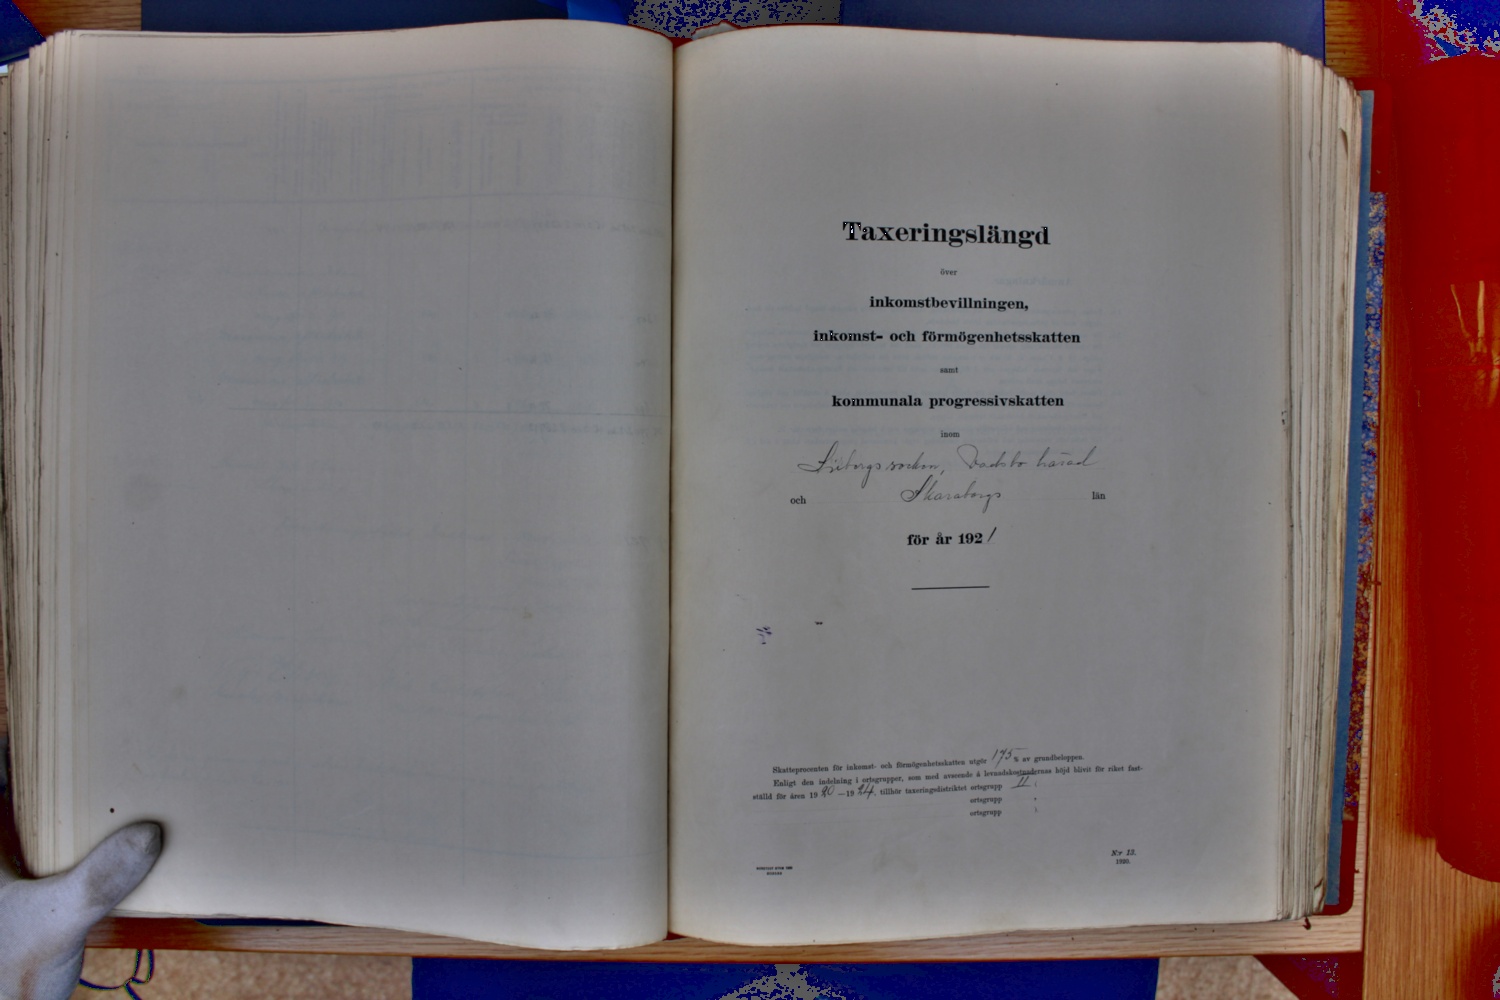 Taxeringslängd
över
inkomstbevillningen,
inkomst- och förmögenhetsskatten
samt
kommunala progressivskatten
inom
socken, Vadsbo härad
och Skaraborgs län
för år 1921
Skatteprocenten för inkomst- och förmögenhetsskatten utgör 175 % av grundbeloppen.
Enligt den indelning i ortsgrupper, som med avseende å levnadskostnadernas höjd blivit för riket fast-
ställd för åren 1920—1924, tillhör taxeringsdistriktet ortsgrupp II
ortsgrupp
ortsgrupp
N:r 13.
1920.